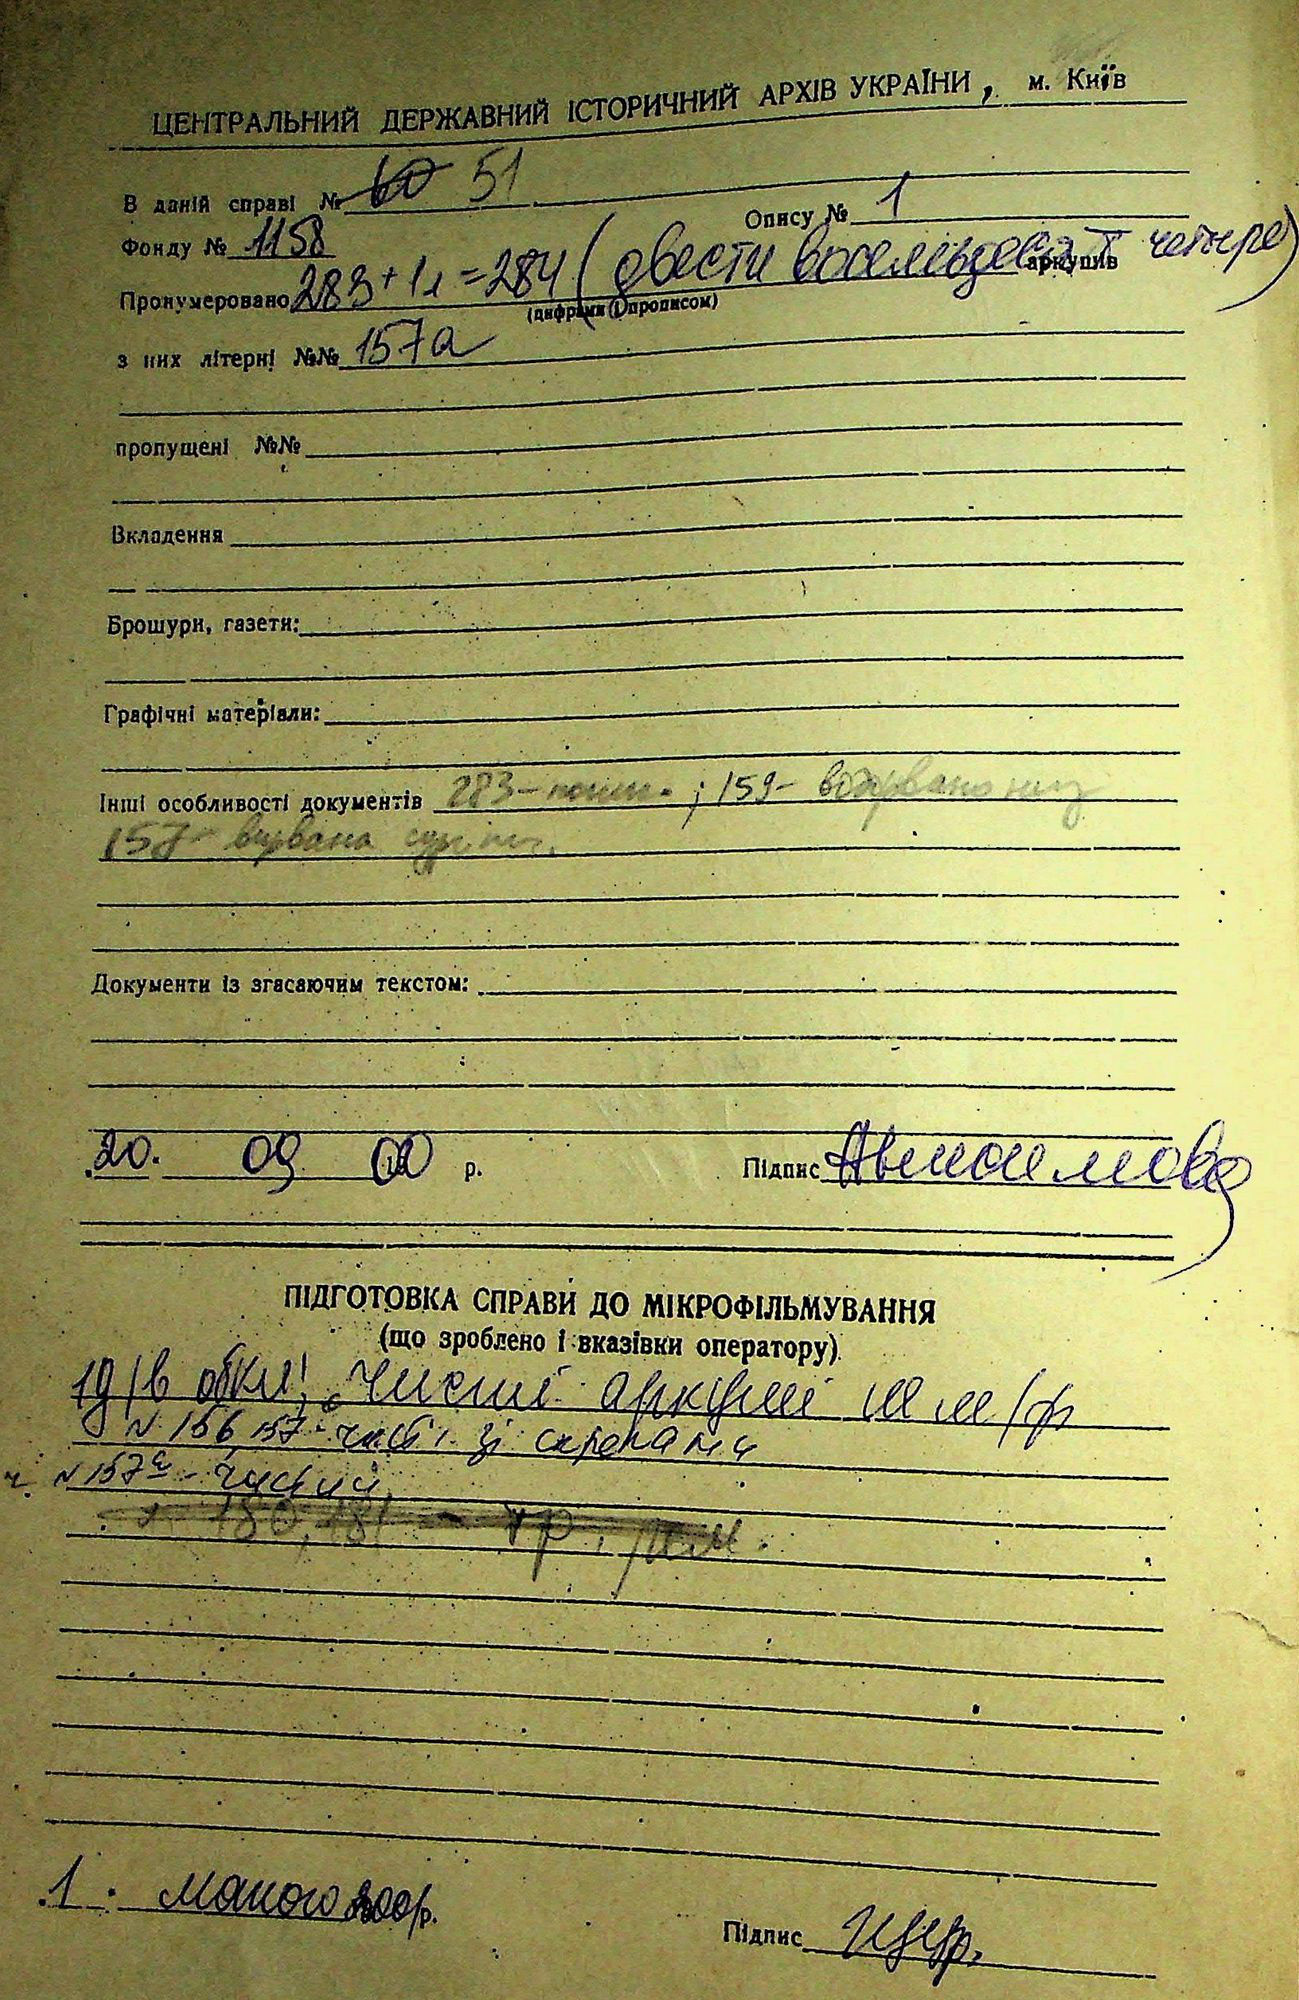 ЦЕНТРАЛЬНИЙ ДЕРЖАВНИЙ ІСТОРИЧНИЙ АРХІВ УКРАЇНИ, м. Київ
В даній справі № 60 51 Опису № 1
Фонду № 1158
Пронумеровано 283+1л=284 (двести восемьдесят четыре) аркушів
(цифрами і прописом)
з них літерні №№ 157а
пропущені №№
Вкладення
Брошури, газети:
Графічні матеріали:
Інші особливості документів 283- ; 159- відірвано низ
157- вирвана
Документи із згасаючим текстом:
20. 09 00 р. Підпис
ПІДГОТОВКА СПРАВИ ДО МІКРОФІЛЬМУВАННЯ
(що зроблено і вказівки оператору)
Чисті аркуші м/ф
№ 156 157- чисті зі скрепами
№ 157а - чистий
180, 181 -
1. р. Підпис